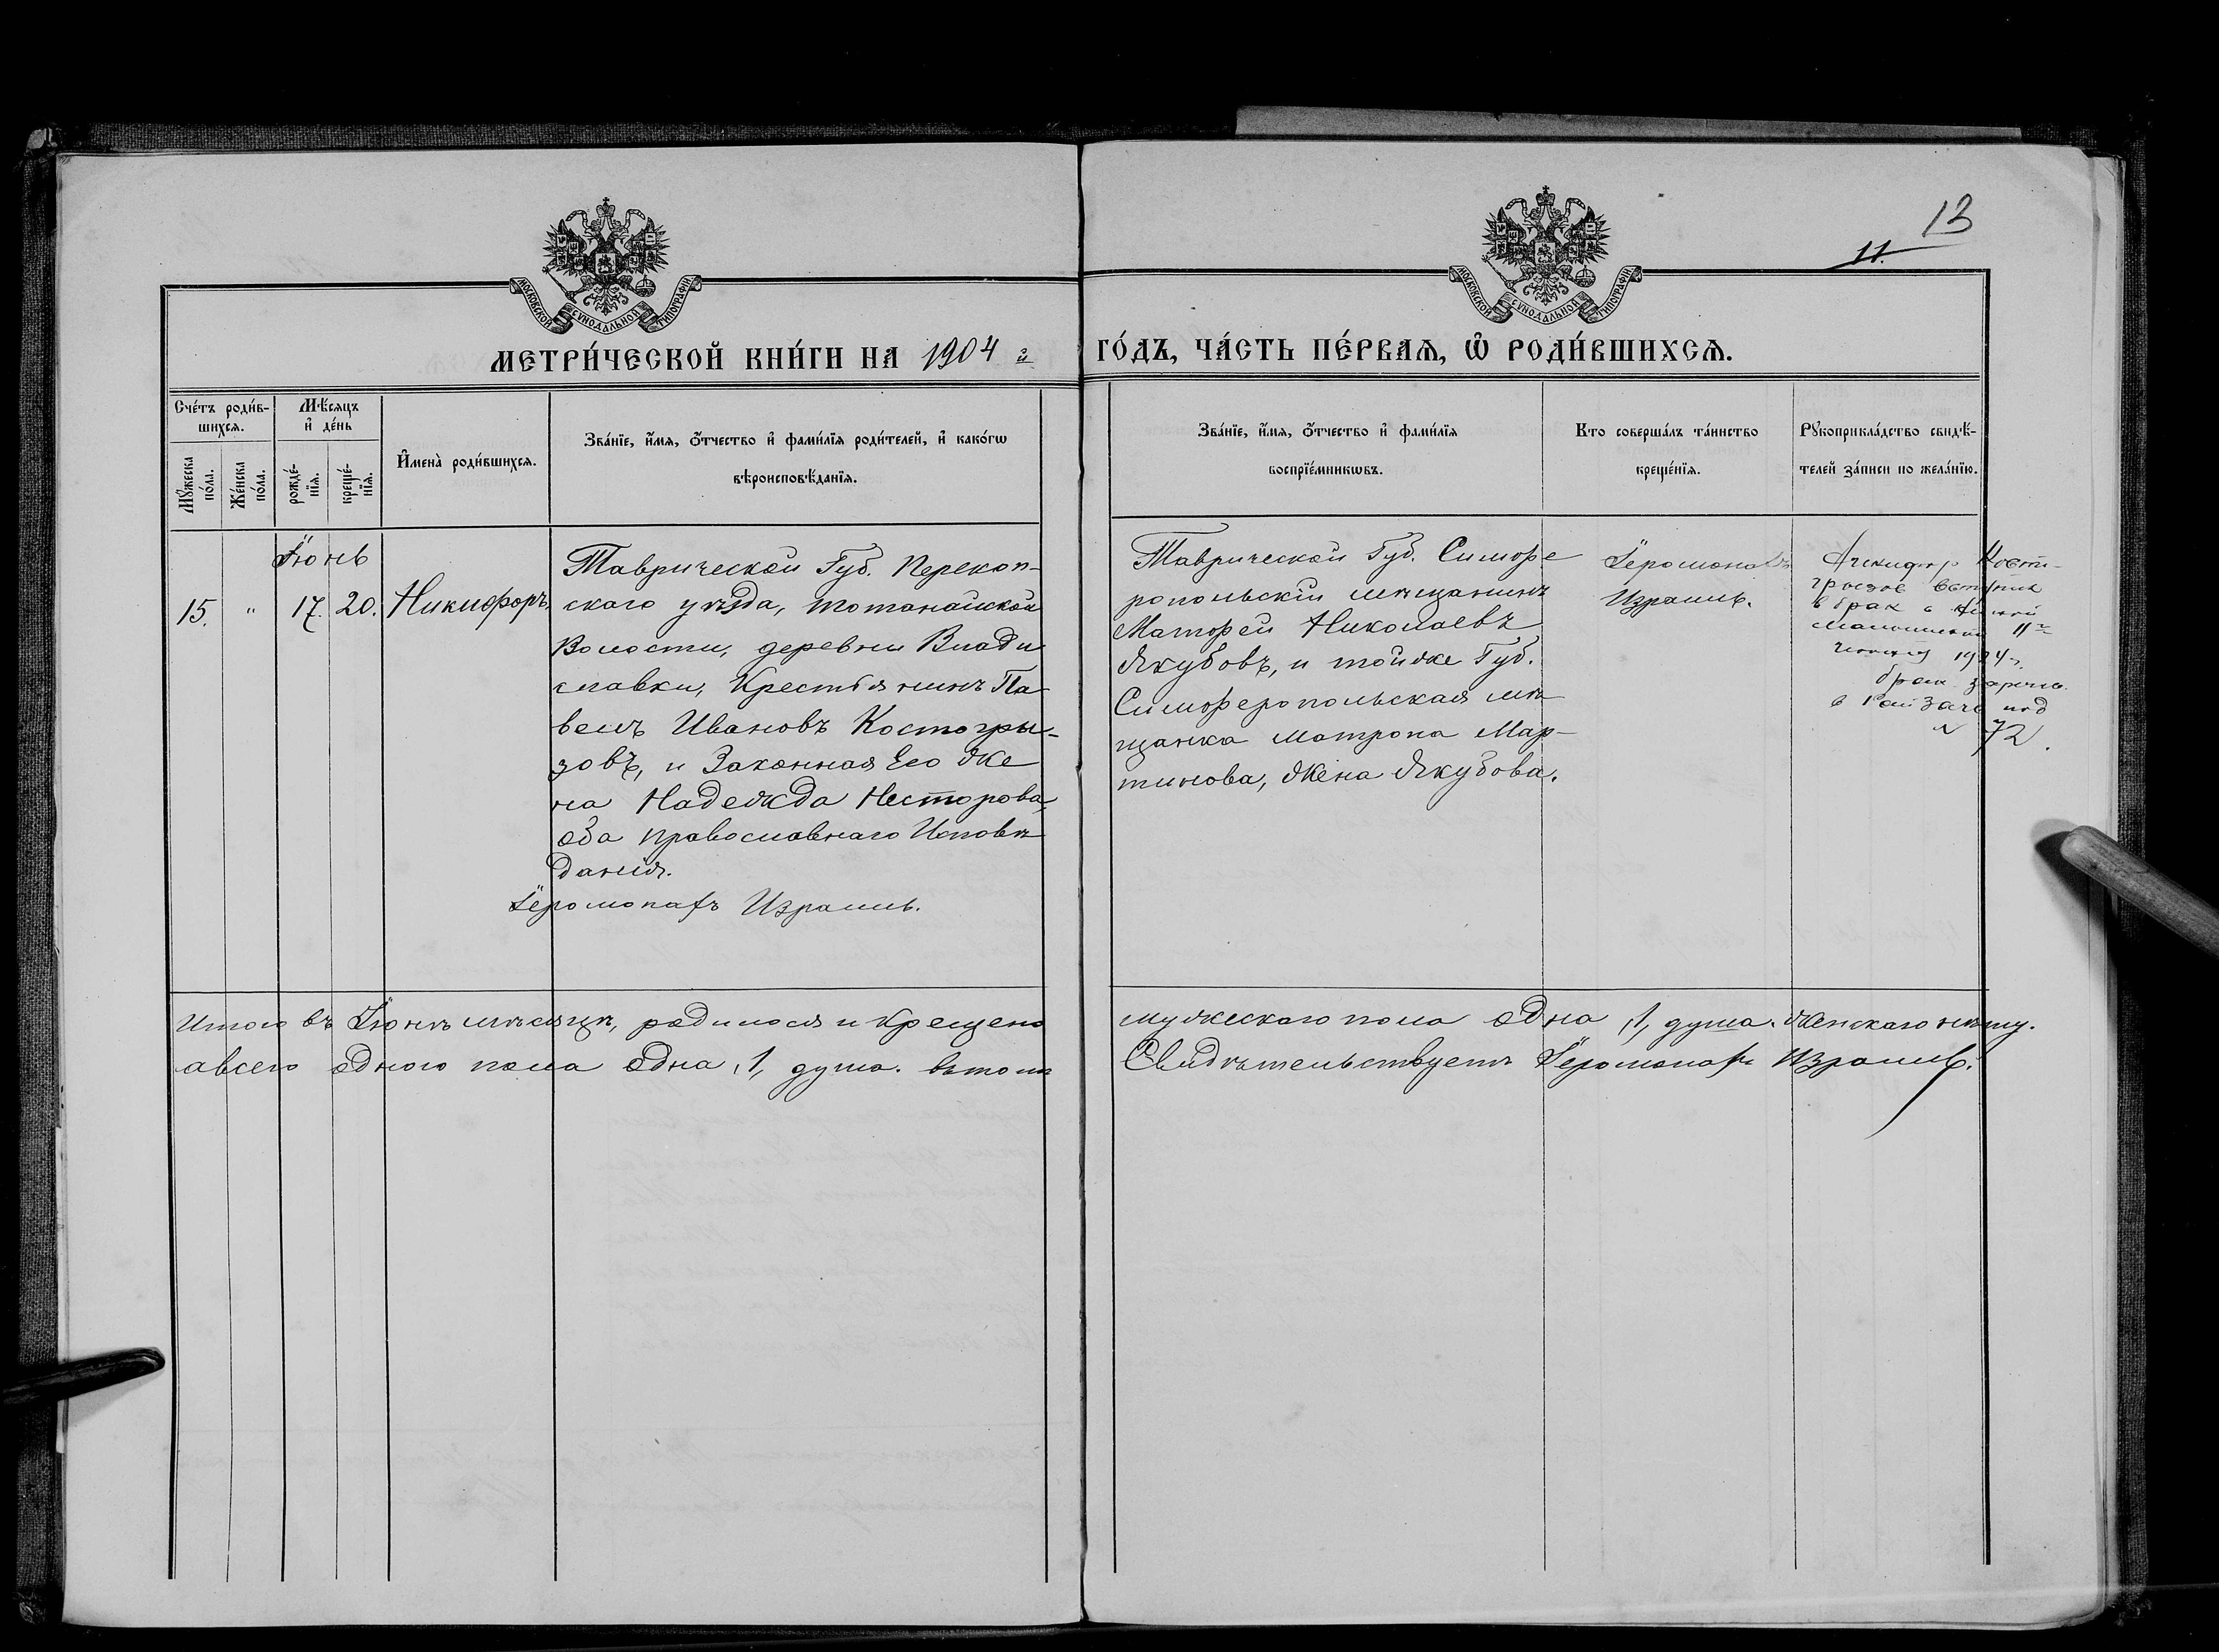 13
11.
МОСКОВСКОЙ СУНОДАЛЬНОЙ ТИПОГРАФІИ
МОСКОВСКОЙ СУНОДАЛЬНОЙ ТИПОГРАФІИ
МЕТРИ́ЧЕСКОЙ КНИ́ГИ НА 1904 г
ГО́ДЪ, ЧА́СТЬ ПЕ́РВАѦ, Ѡ҆ РОДИ́ВШИХСѦ.
Сче́тъ роди́в-
шихсѧ.
Мꙋ́жеска по́ла.
Же́нска по́ла.
Мѣ́сѧцъ
и҆ де́нь
рожде́-
нїѧ.
креще́-
нїѧ.
И҆мена̀ роди́вшихсѧ.
Зва́нїе, и҆́мѧ, ѻ҆́тчество и҆ фами́лїѧ роди́телей, и҆ како́гѡ
вѣроисповѣ́данїѧ.
Зва́нїе, и҆́мѧ, ѻ҆́тчество и҆ фами́лїѧ
воспрїе́мникѡвъ.
Кто соверша́лъ та́инство
креще́нїѧ.
Рꙋкоприкла́дство свидѣ́-
телей за́писи по жела́нїю.
Їюнь
15. " 17. 20. Никифоръ,
Таврической Губ. Перекоп-
скаго уѣзда, тотанайской
Волости, деревни Влади
славки, Крестьянинъ Па
велъ Ивановъ Костогры-
зовъ, и Законная Его Же
на Надежда Несторова,
оба православнаго Исповѣ
данія.
Їеромонахъ Израиль.
Таврической Губ. Симфе
ропольскій мѣщанинъ
Матфей Николаевъ
Якубовъ, и тойже Губ.
Симферопольская мѣ
щанка Матрона Мар-
тинова, Жена Якубова.
Їеромонахъ
Израиль.
Никифор Косто-
грызов вступил
в брак с
11го
1924 г.
брак
в под
№ 72.
Итого въ Їюнѣ мѣсяцѣ, родилося и Крещено
мужескаго пола одна ,1, душа. Женскаго нѣту.
авсего одного пола одна ,1, душа. вътомъ
Свидѣтельствуетъ Їеромонахъ Израиль.